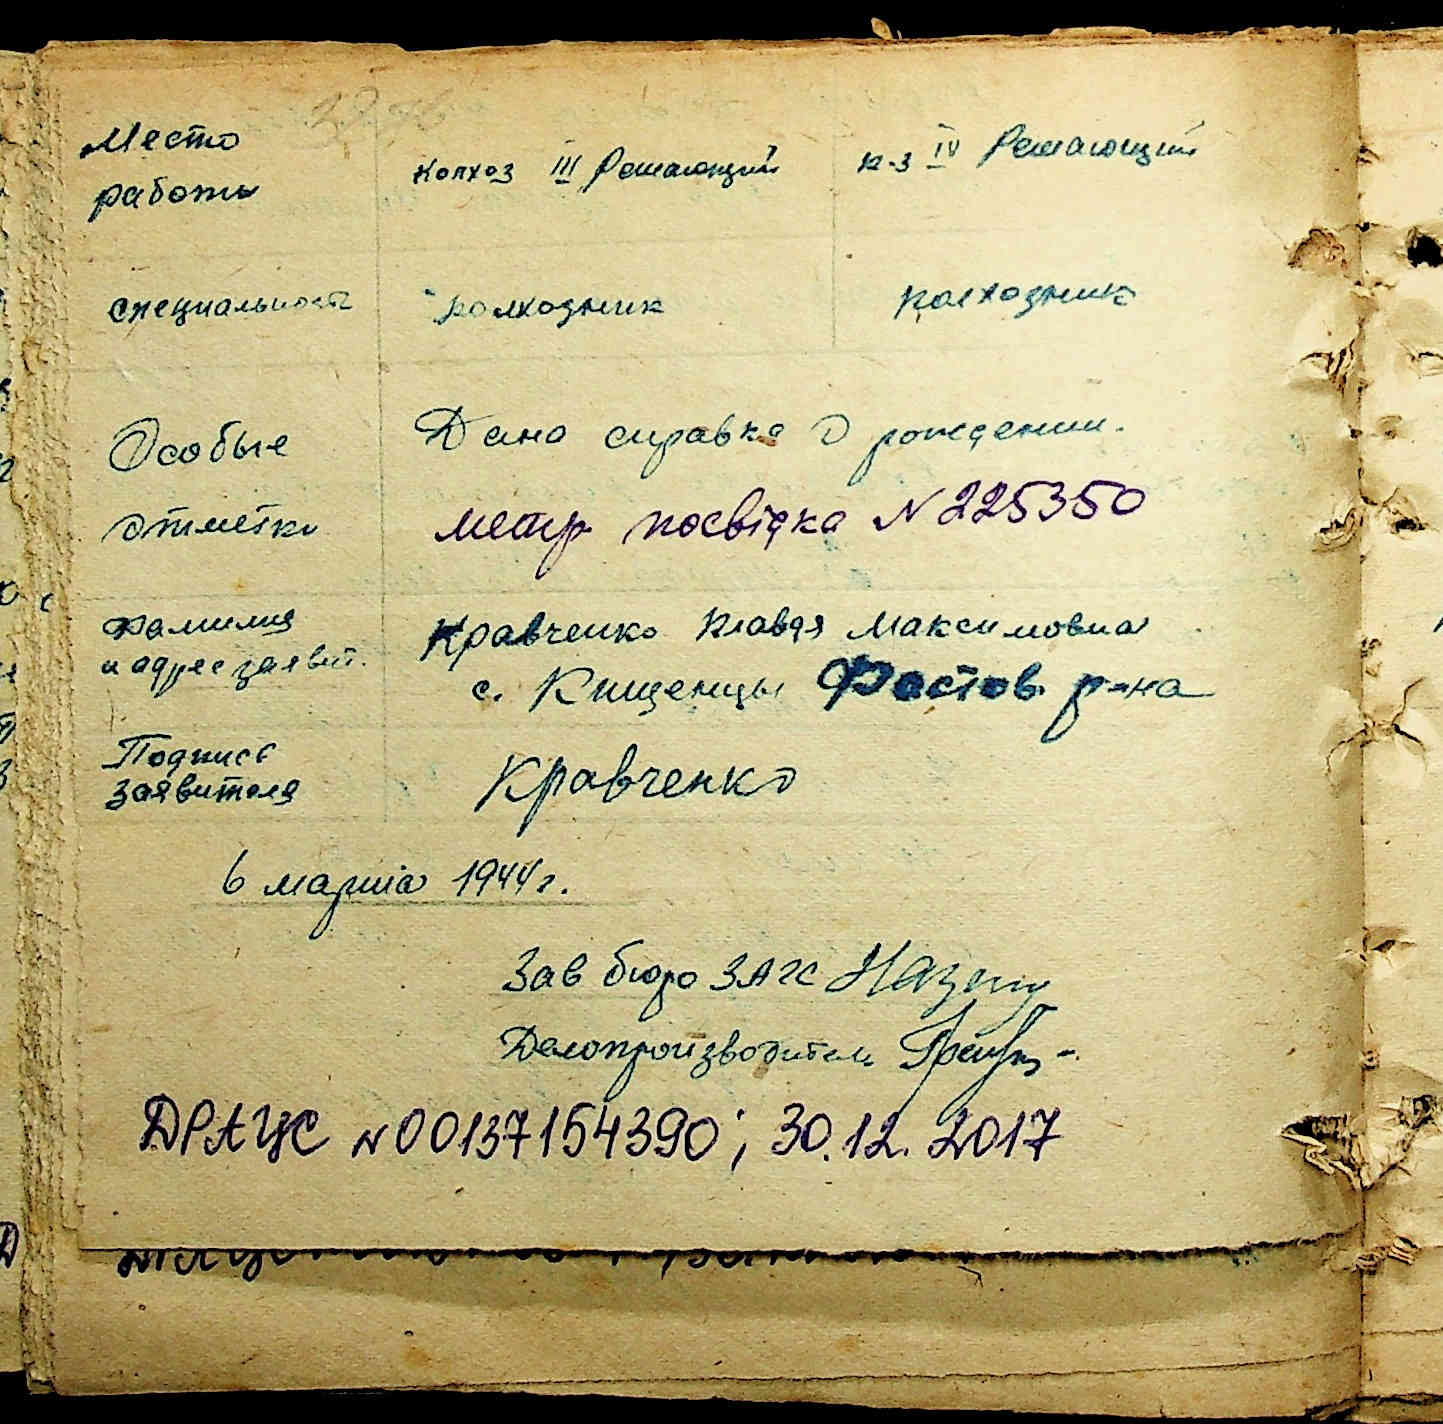 Место работы
колхоз III Решающий
к-з IV Решающий
специальность
колхозник
колхозник
Особые
отметки
Дана справка о рождении.
метр посвідка N 225350
Фамилия
и адрес заявит.
Кравченко Клавдя Максимовна
с. Кищенцы Фастов. р-на
Подпись
заявителя
Кравченко
6 марта 1944 г.
Зав бюро ЗАГС
Делопроизводитель
ДРАЦС N 00137154390; 30.12.2017